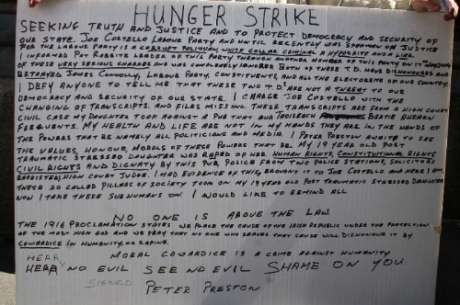 HUNGER STRIKE
SEEKING TRUTH AND JUSTICE AND TO PROTECT DEMOCRACY AND SECURITY OF
OUR STATE. JOE COSTELLO LABOUR PARTY AND UNTIL RECENTLY WAS SPOKSMAN ON JUSTICE
FOR THE LABOUR PARTY IS A CORRUPT POLITICIAN WHITE COLLAR CRIMINAL A HYPOCRITE AND A LIAR
I INFORMED PAT RABBITE LEADER OF THIS PARTY THROUGH ANOTHER MEMBER OF THIS PARTY ON
OF THESE VERY SERIOUS CHARGES AND WAS COMPLETELY IGNORED. BOTH OF THESE T.D. HAVE DISHONOURED AND
BETRAYED JAMES CONNOLLY, LABOUR PARTY, CONSTITUENTS, AND ALL THE ELECTORATE OF OUR COUNTRY.
I DEFY ANYONE TO TELL ME THAT THESE TWO T.DS ARE NOT A THREAT TO OUR
DEMOCRACY AND SECURITY OF OUR STATE. I CHARGE JOE COSTELLO WITH THE
CHANGING OF TRANSCRIPTS, AND PAGES MISSING. THESE TRANSCRIPTS ARE FROM A HIGH COURT
CIVIL CASE MY DAUGHTER TOOK AGAINST A PUB THAT BERTIE AHEARN
FREQUENTS. MY HEALTH AND LIFE ARE NOT IN MY HANDS THEY ARE IN THE HANDS OF
THE POWERS THAT BE NAMELY ALL POLITICIANS AND MEDIA. I PETER PRESTON AWAITS TO SEE
THE VALUES HONOUR MORALS OF THESE POWERS THAT BE. MY 19 YEAR OLD POST
TRAUMATIC STRESSED DAUGHTER WAS RAPED OF HER HUMAN RIGHTS, CONSTITUTIONAL RIGHTS
CIVIL RIGHTS AND DIGNITY BY THIS PUB, POLICE FROM TWO POLICE STATIONS, SOLICITORS
BARRISTERS, HIGH COURT JUDGE. I HAD EVIDENCE OF THIS, BROUGHT IT TO JOE COSTELLO AND HERE I AM
THESE SO CALLED PILLARS OF SOCIETY TOOK ON MY 19 YEAR OLD POST TRAUMATIC STRESSED DAUGHTER
NOW I TAKE THESE SUBHUMANS ON I WOULD LIKE TO REMIND ALL
NO ONE IS ABOVE THE LAW
THE 1916 PROCLAMATION STATES WE PLACE THE CAUSE OF THE IRISH REPUBLIC UNDER THE PROTECTION
OF THE MOST HIGH GOD AND WE PRAY THAT NO ONE WHO SERVES THAT CAUSE WILL DISHONOUR IT BY
COWARDICE INHUMANITY OR RAPINE.
MORAL COWARDICE IS A CRIME AGAINST HUMANITY
HEAR NO EVIL SEE NO EVIL SHAME ON YOU
SIGNED PETER PRESTON